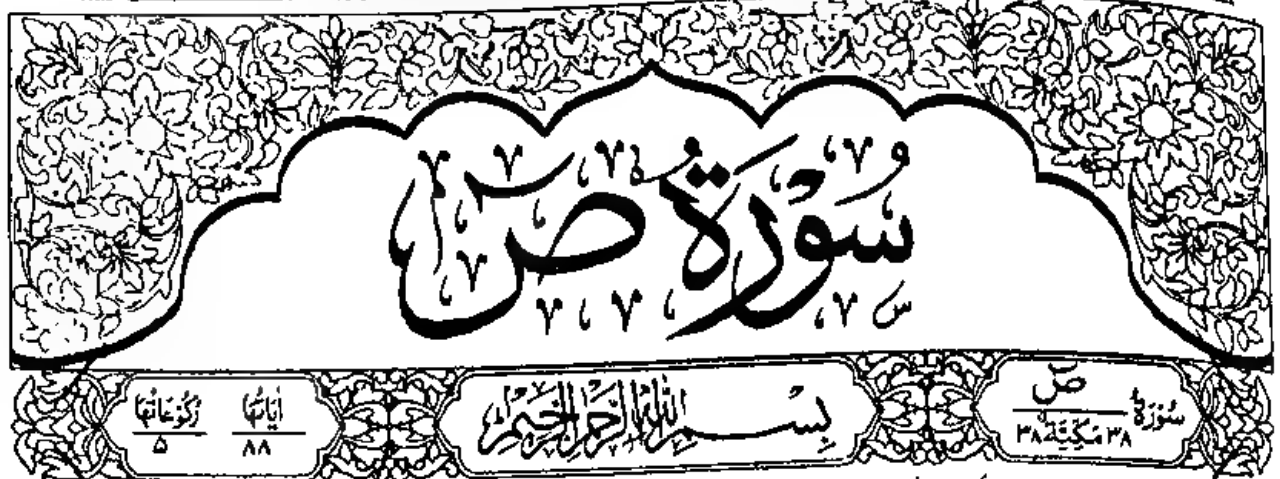 سُوْرَةُ صٓ
سُوْرَةُ صٓ ٣٨ مَكِّيَّةٌ ٣٨
بِسْمِ اللهِ الرَّحْمٰنِ الرَّحِيْمِ
اٰيَاتُهَا ٨٨
رُكُوْعَاتُهَا ٥